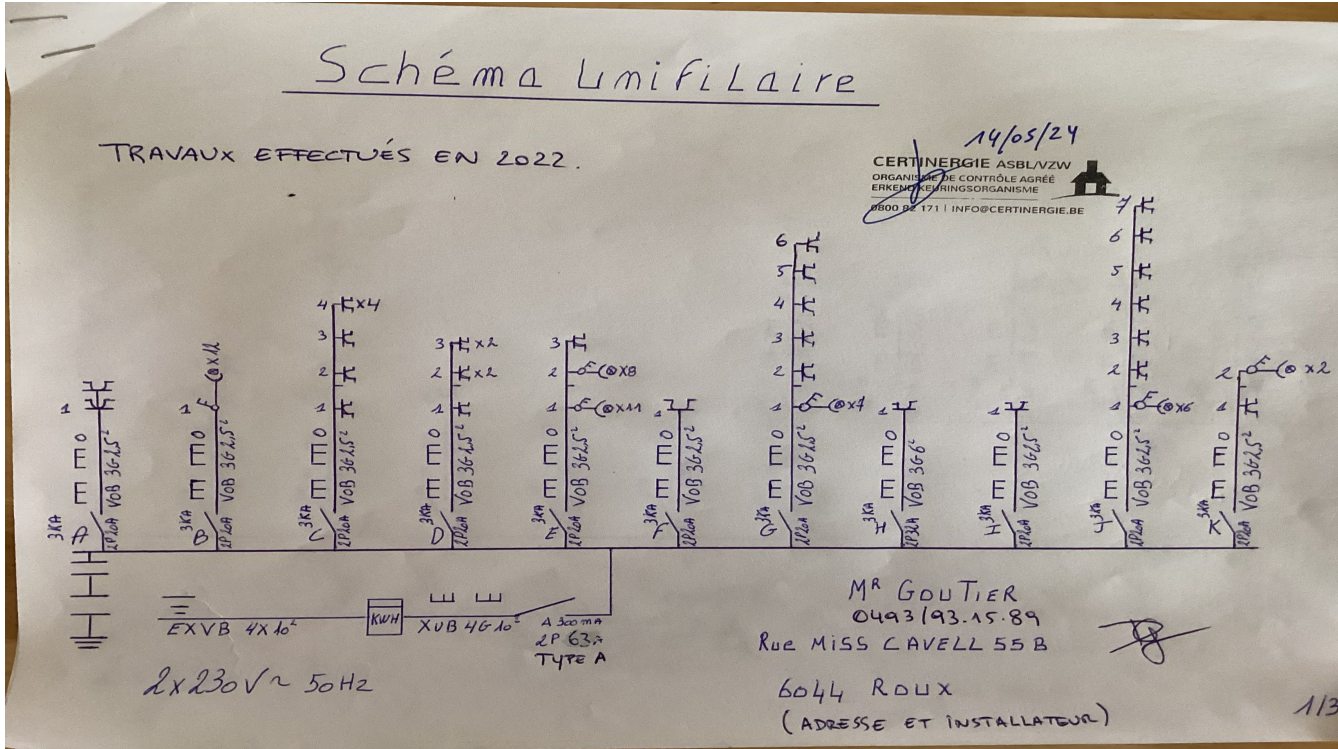 Schéma Unifilaire
TRAVAUX EFFECTUÉS EN 2022.
14/05/24
CERTINERGIE ASBL/VZW
ORGANISME DE CONTRÔLE AGRÉÉ
ERKEND KEURINGSORGANISME
0800 82 171 | INFO@CERTINERGIE.BE
1
3KA A 2P20A VOB 3G2,5²
x12
1
3KA B 2P20A VOB 3G2,5²
4 x4
3
2
1
3KA C 2P20A VOB 3G2,5²
3 x2
2 x2
1
3KA D 2P20A VOB 3G2,5²
3
2 x8
1 x11
3KA E 2P20A VOB 3G2,5²
1
3KA F 2P20A VOB 3G2,5²
6
5
4
3
2
1 x7
3KA G 2P20A VOB 3G2,5²
1
3KA 2P32A VOB 3G6²
1
3KA 2P20A VOB 3G2,5²
7
6
5
4
3
2
1 x6
3KA J 2P20A VOB 3G2,5²
2 x2
1
3KA K 2P20A VOB 3G2,5²
EXVB 4X10²
KWH
XVB 4G10²
Δ 300mA
2P 63A
TYPE A
2x230V~ 50Hz
MR GOUTIER
0493/93.15.89
Rue MISS CAVELL 55B
6044 ROUX
(ADRESSE ET INSTALLATEUR)
1/3